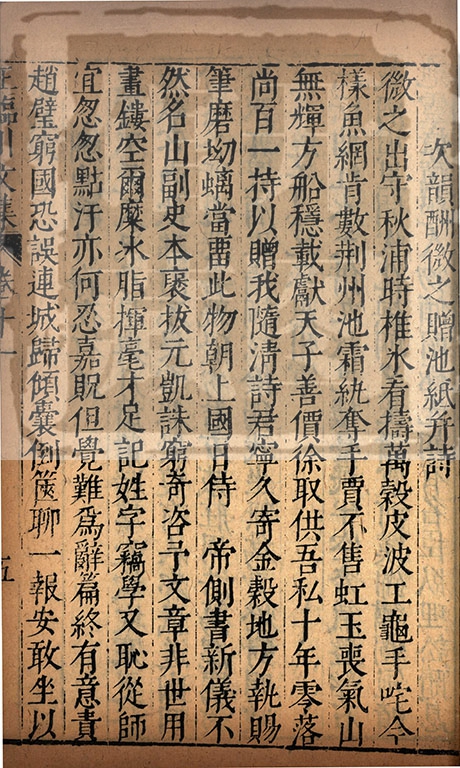 次韻酬微之贈池紙并詩
微之出守秋浦時椎氷看擣萬穀皮波工龜手咤今
樣魚網肯數荆州池霜紈奪手賈不售虹玉喪氣山
無輝方船穩載獻天子善價徐取供吾私十年零落
尚百一持以贈我隨清詩君寧久寄金穀地方執賜
筆磨坳螭當畱此物朝上國日侍 帝側書新儀不
然名山副史本褒拔元凱誅窮奇咨予文章非世用
畫鏤空爾糜冰脂揮毫才足記姓字竊學又恥從師
宜忽忽點汙亦何忍嘉貺但覺難爲辭篇終有意責
趙璧窮國恐誤連城歸傾囊倒篋聊一報安敢坐以
王臨川文集 卷十一 五